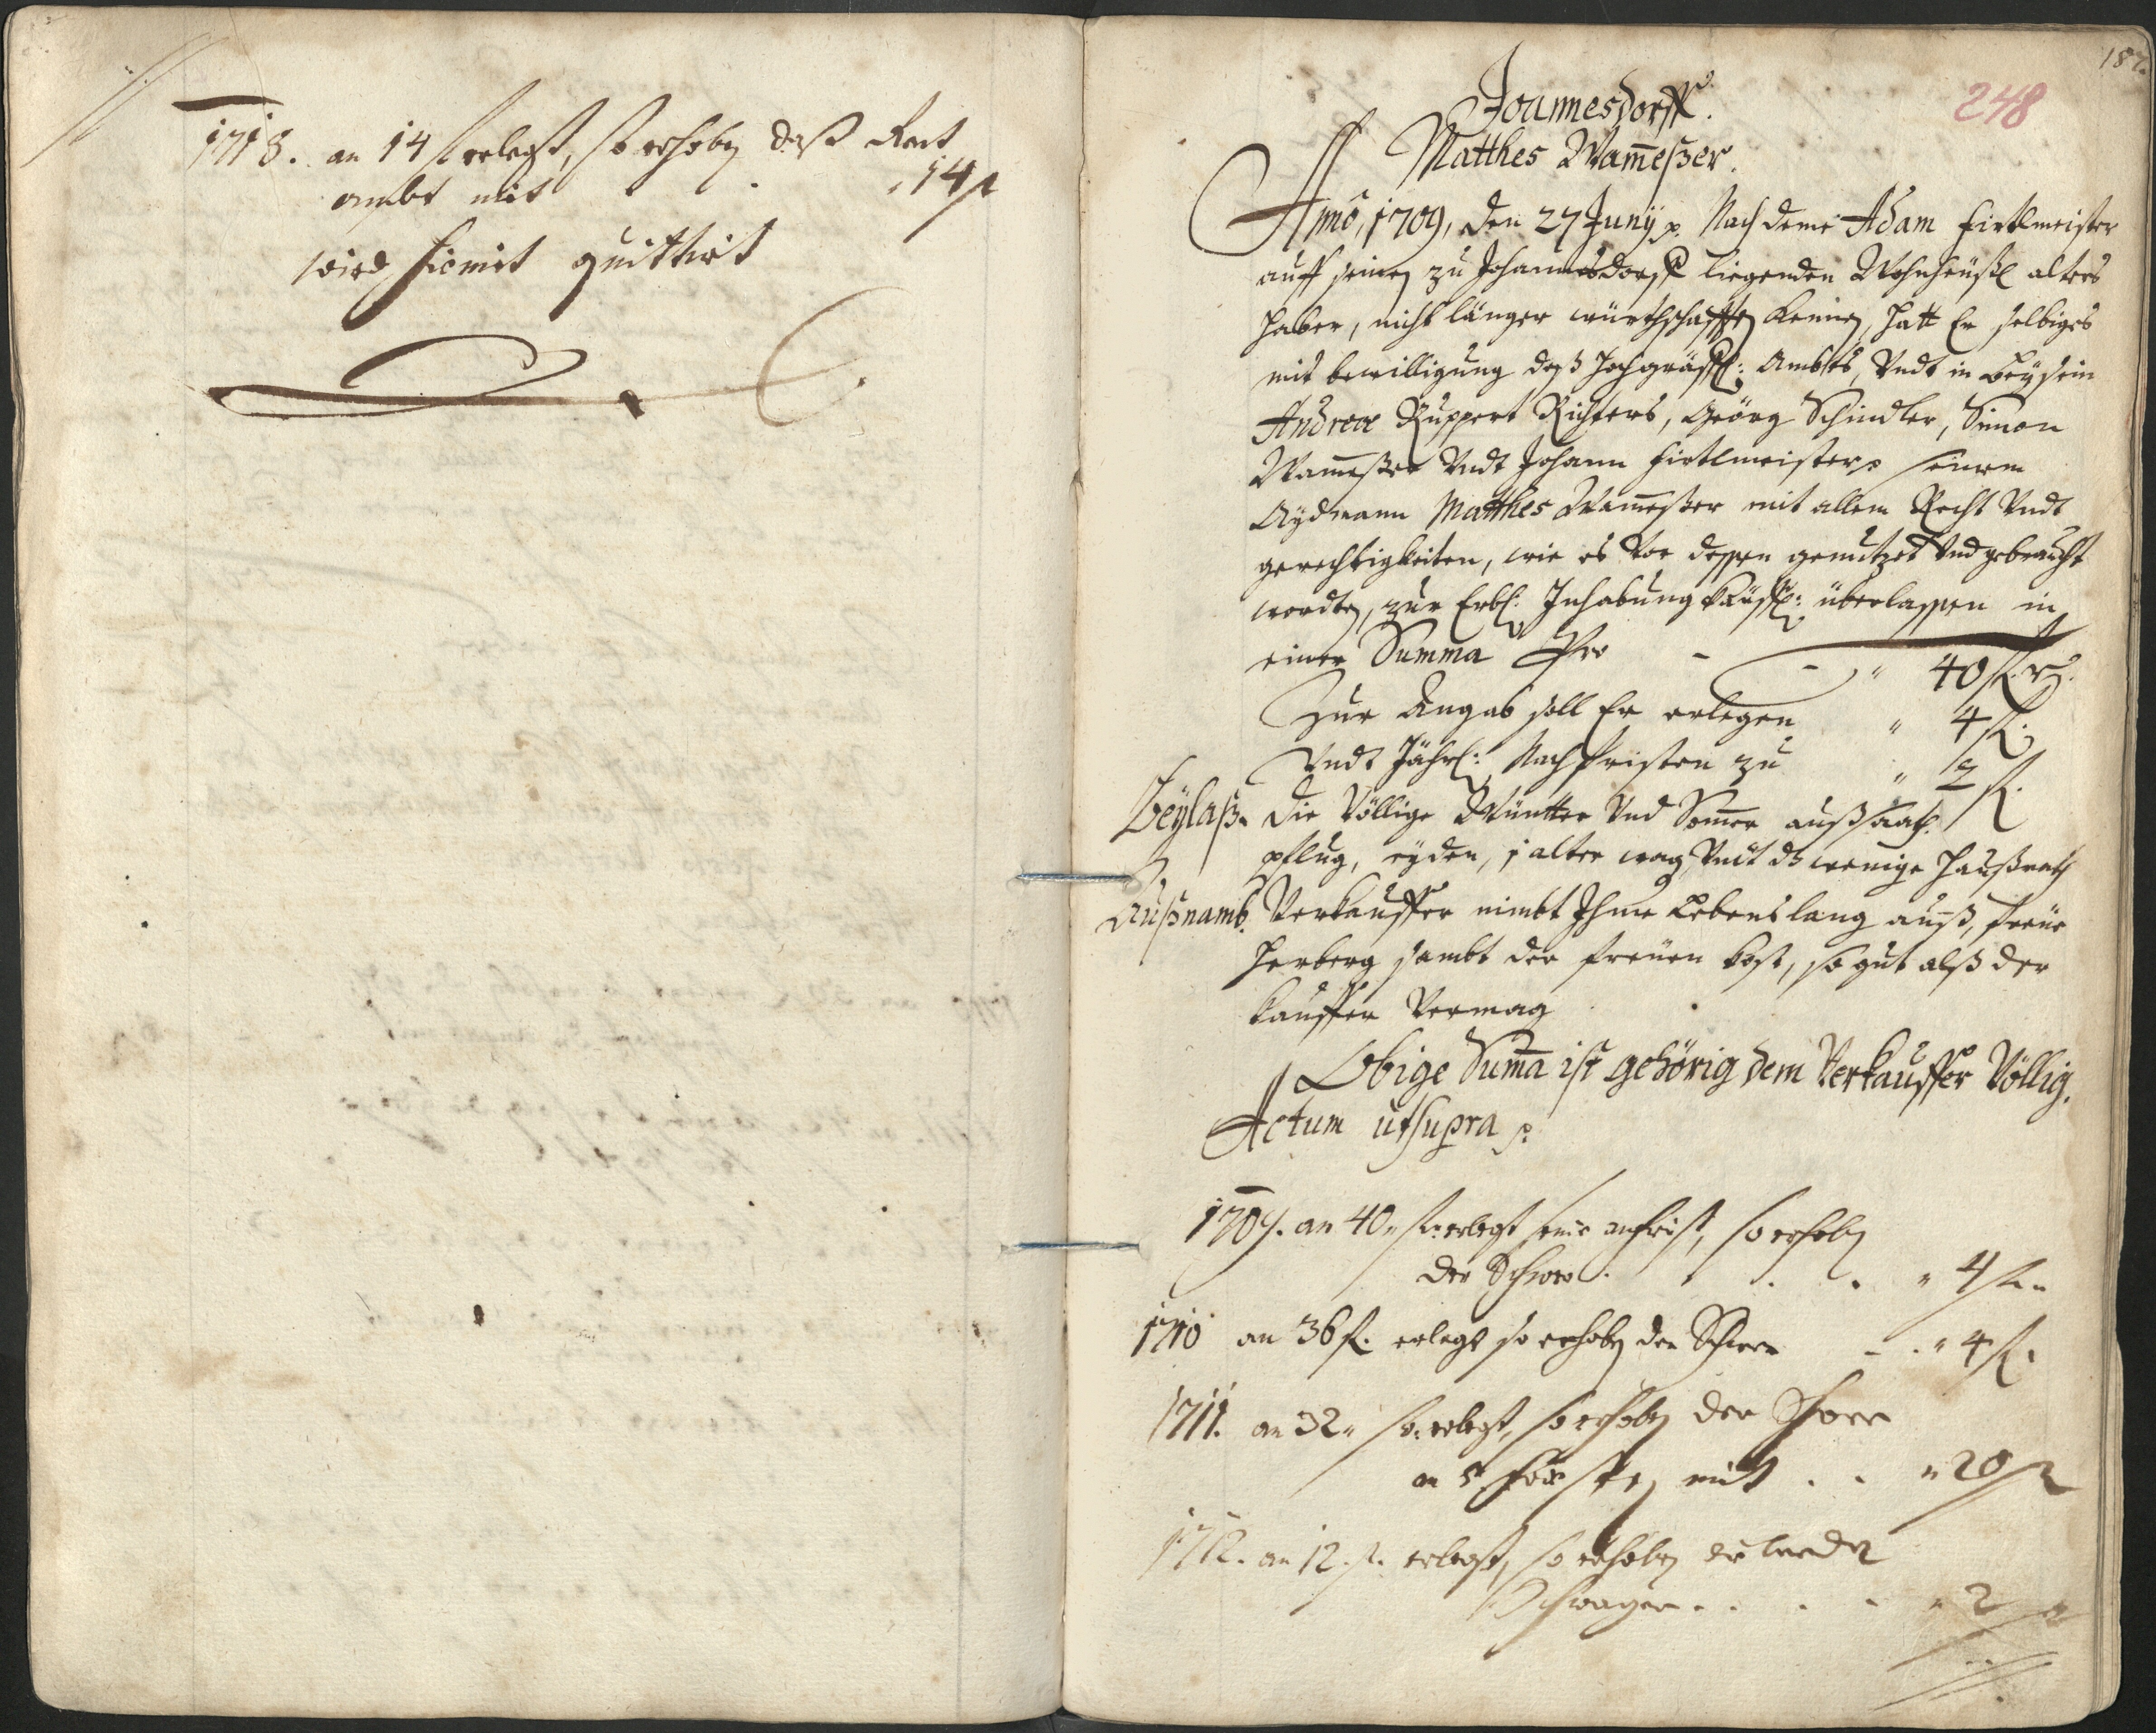 1718. an 14 f erlegt, so erhoben daß Rent
ambt mit . . „ 14 f
wird hiemit quittirt
182.
248
Joannesdorff.
Matthes Wam̄eßer.
Anno, 1709, den 27 Junÿ p. Nach deme Adam Hirtlmeister
auff seinen zu Johannesdorff liegenden Wohnheußl alters
halber, nicht länger würthschafften kennen, hatt Er selbiges
mit bewilligung deß hochgräffl: Ambtes, Vndt in beÿsein
Andreæ Ruppert Richters, Geörg Schindler, Simon
Wam̄eßer Vndt Johann Hirtlmeisters seinem
Aÿdmann Matthes Wam̄eßer mit allem Recht Vndt
gerechtigkeiten, wie es Vor dessen genutzet Vnd gebraucht
wordten, zur Erbl: Inhabung Käuffl: überlassen in
einer Summa Pro - - „ 40 f. rh.
Zur Angab soll Er erlegen „ 4 f.
Vndt Jährl: Nachfristen zu „ 2 f.
Beÿlaß. Die Völlige Wüntter Vnd Som̄er außsaath.
pflug, eÿden, 1 alter wag Vndt dz wenige haußrath
Außnamb. Verkauffer nimbt Ihme Lebenslang auß, freÿe
Herberg sambt der freÿen kost, so gut alß der
kauffer Vermag
Obige Sum̄a ist gehörig dem Verkauffer Völlig.
Actum ut supra p.
1709. an 40 „ f. erlegt seine anfrist, so erhoben
der . . . . „ 4 f.
1710 an 36 f. erlegt so erhoben der - . „ 4 f.
1711. an 32 „ f. erlegt, so erhoben der
an 5 mit . . „ 20 f
1712. an 12. f. erlegt, so erhoben
Schwager . . . . „ 2 f